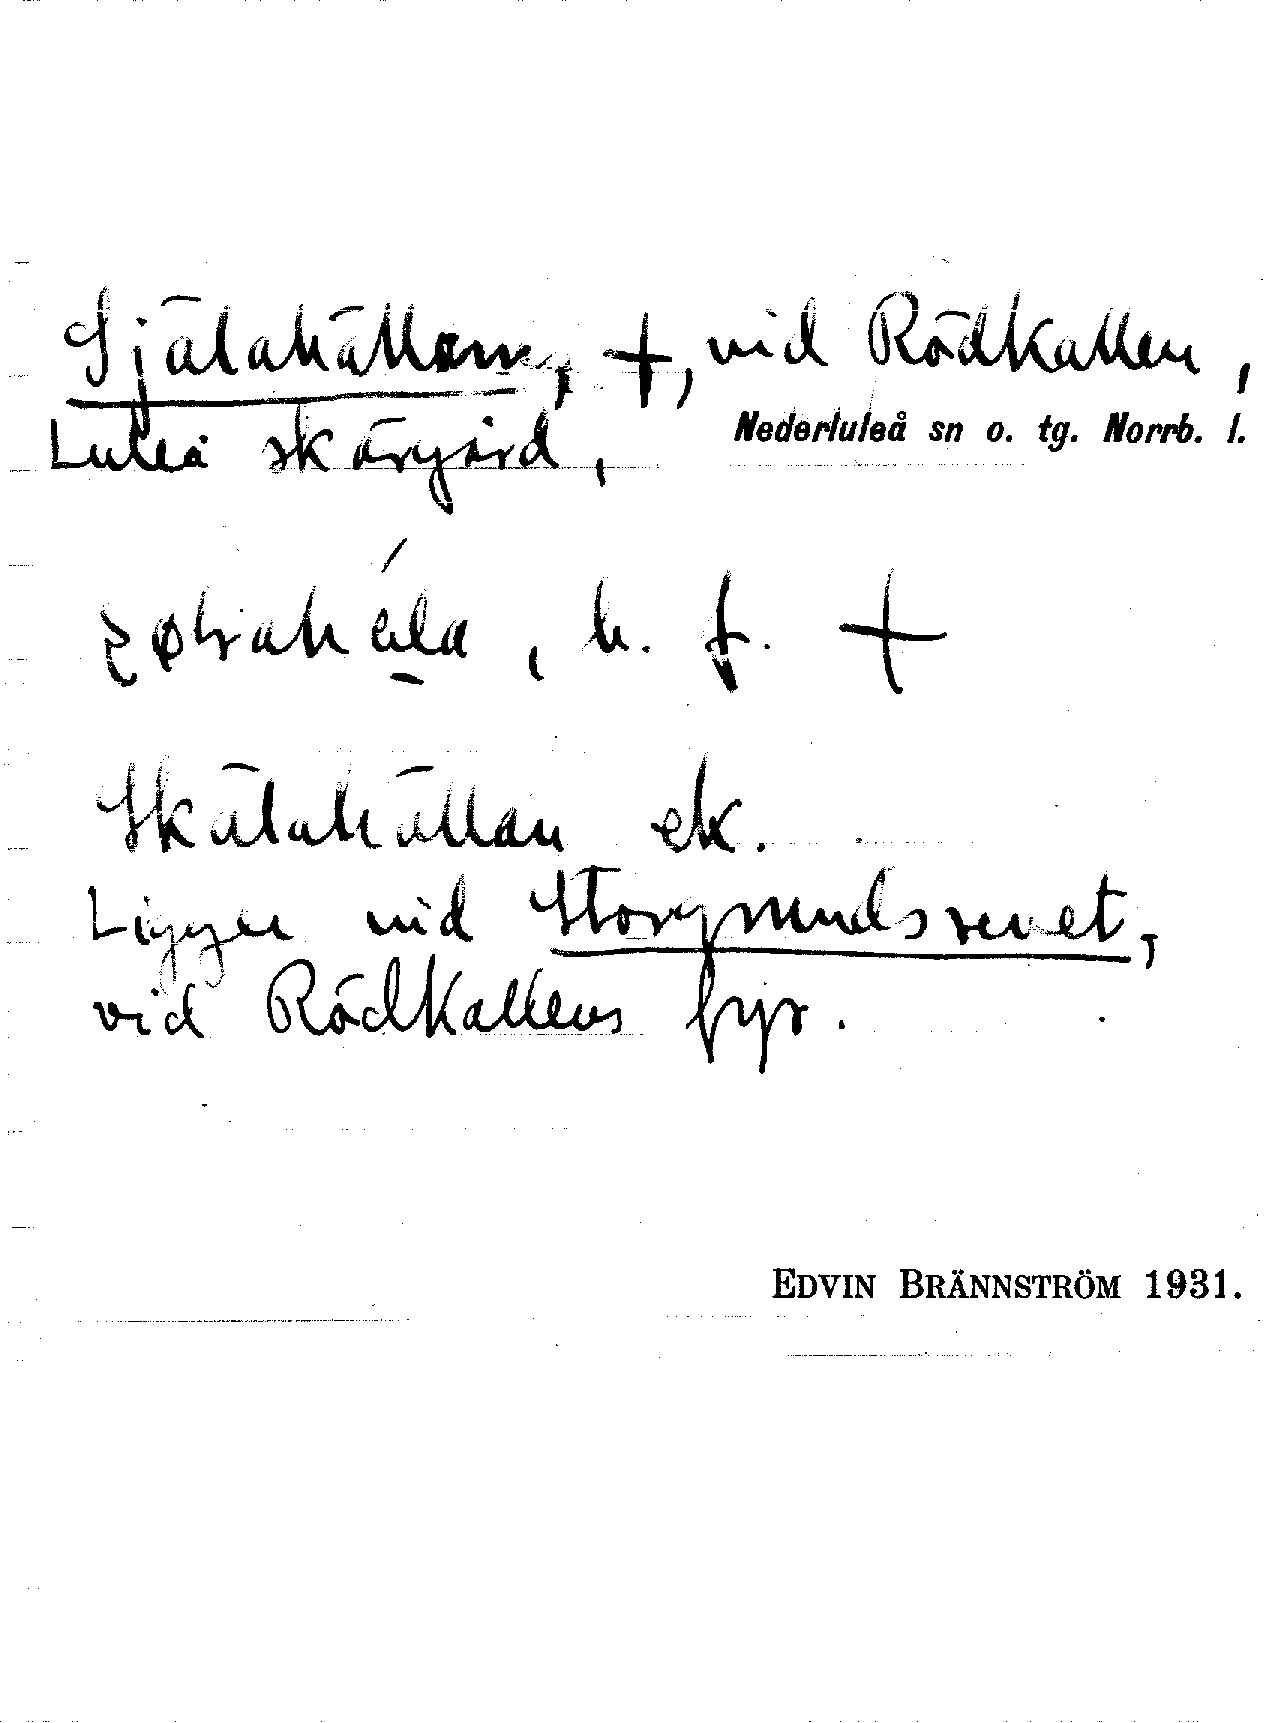 Själahällorna, +, vid Rödkallen,
Luleå skärgård, Nederluleå sn o. tg. Norrb. l.
, h. f. +
Skälahällan ek.
Ligger vid Storgrundsrevet,
vid Rödkallens fyr.
EDVIN BRÄNNSTRÖM 1931.